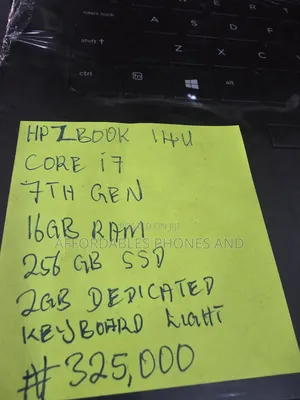 caps lock
A
shift
Z
X
ctrl
fn
alt
HP ZBOOK 14U
CORE i7
7TH GEN
16GB RAM
AFFORDABLES PHONES AND
256 GB SSD
2GB DEDICATED
KEYBOARD LIGHT
#325,000